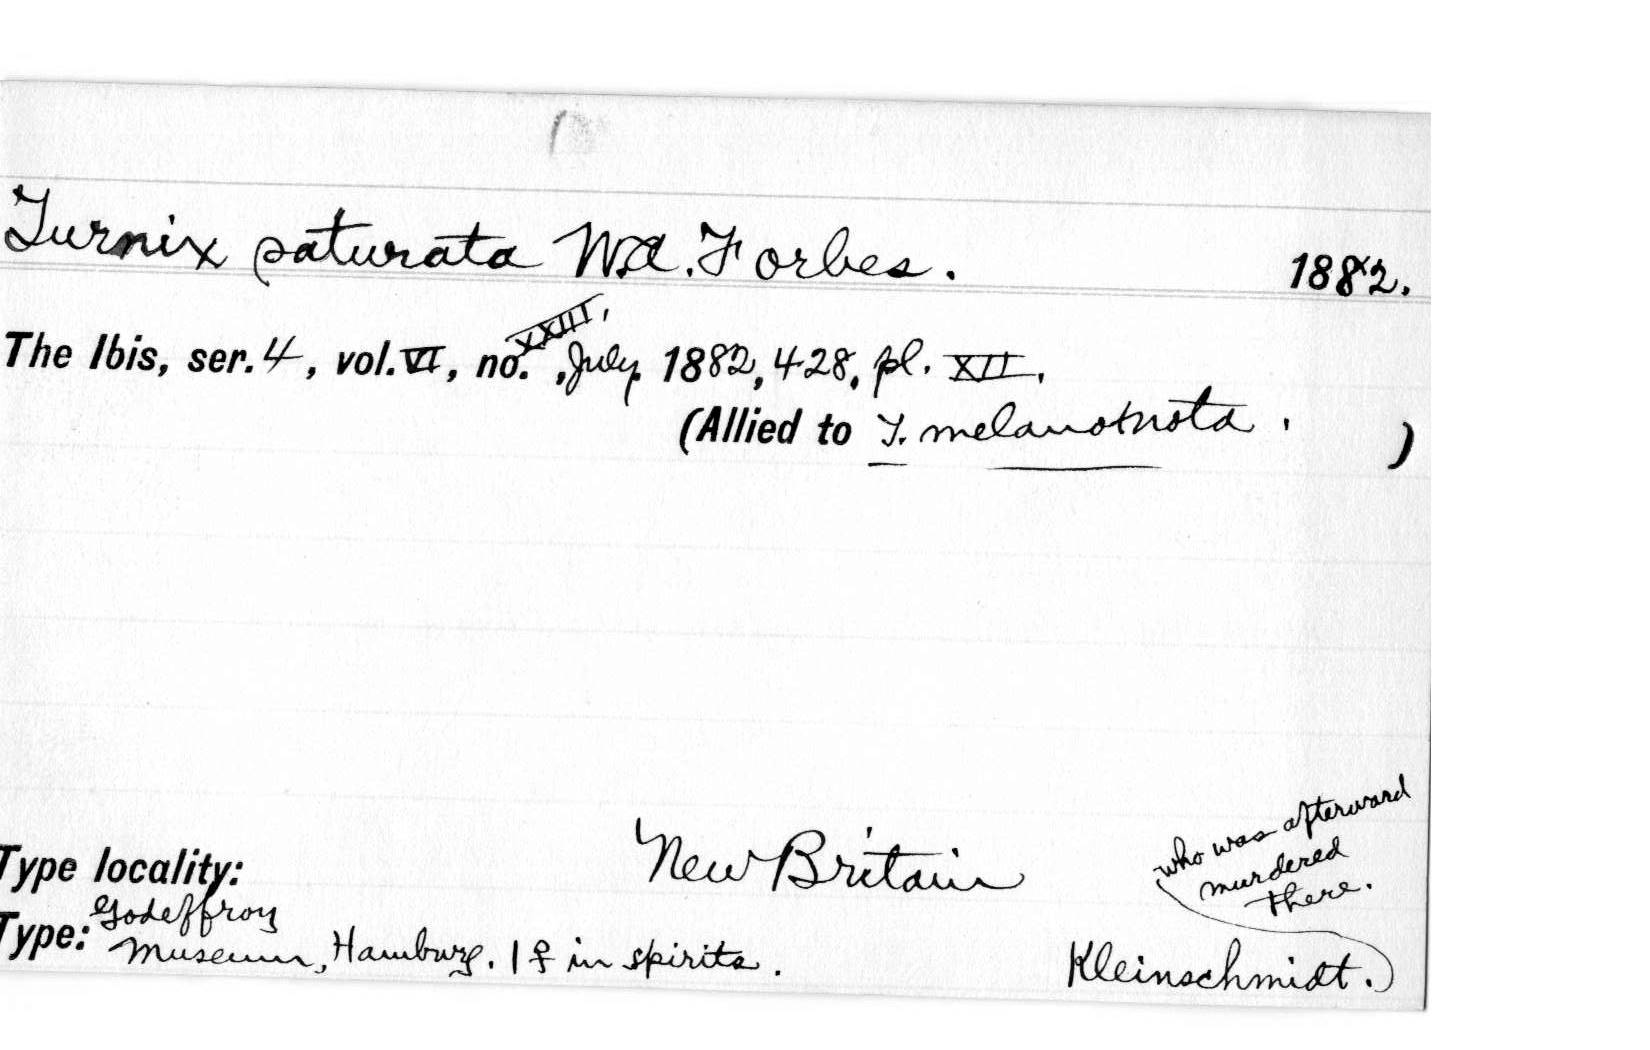 Turnix saturata W.A. Forbes. 1882.
The Ibis, ser. 4, vol. VI, no. XXIII, July, 1882, 428, pl. XII.
(Allied to T. melanotnota. )
Type locality: New Britain
Type: Godeffroy
Museum, Hamburg. 1 ♀ in spirits. Kleinschmidt.
who was afterward
murdered
there.